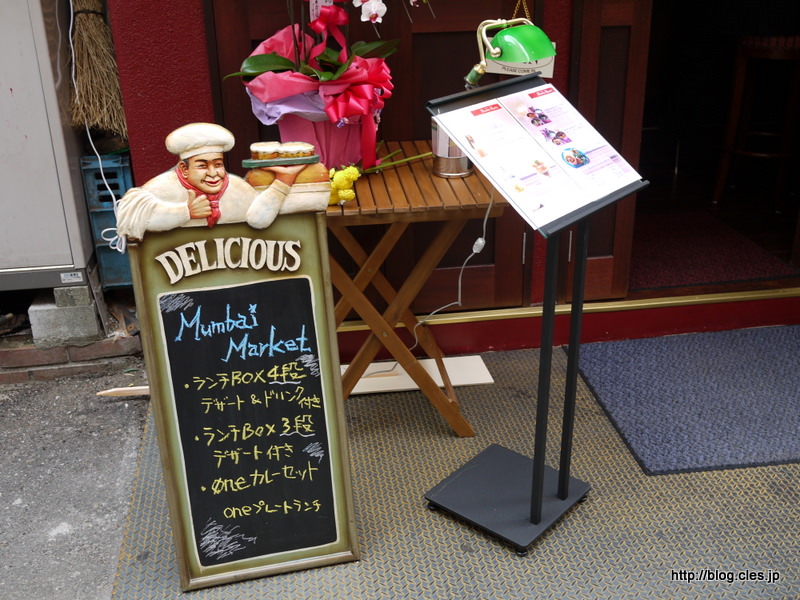 PLEASE COME IN
DELICIOUS
Mumbai
Market
・ランチBOX 4段
デザート & ドリンク付き
・ランチBOX 3段
デザート付き
・oneカレーセット
oneプレートランチ
http://blog.cles.jp